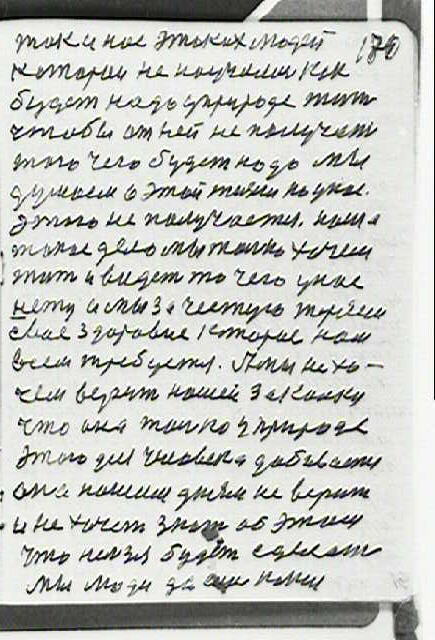 так и нас этаких людей 170
которои не научили как
будет надо у природе жит
чтобы от ней не получат
того чего будет надо мы
думаем о этой жизни наука.
этого не получается. наша
такое дело мы толко хочем
жит и видет то чего у нас
нету и мы за честую теряем
свае здоровие которое нам
всем требуется. А мы не хо-
чем верит нашей закалки
что она толко у природе
этого для человека добывается
она нашим людям не верит
и не хочет знат об этим
что нелзя будет сделат
мы люди да